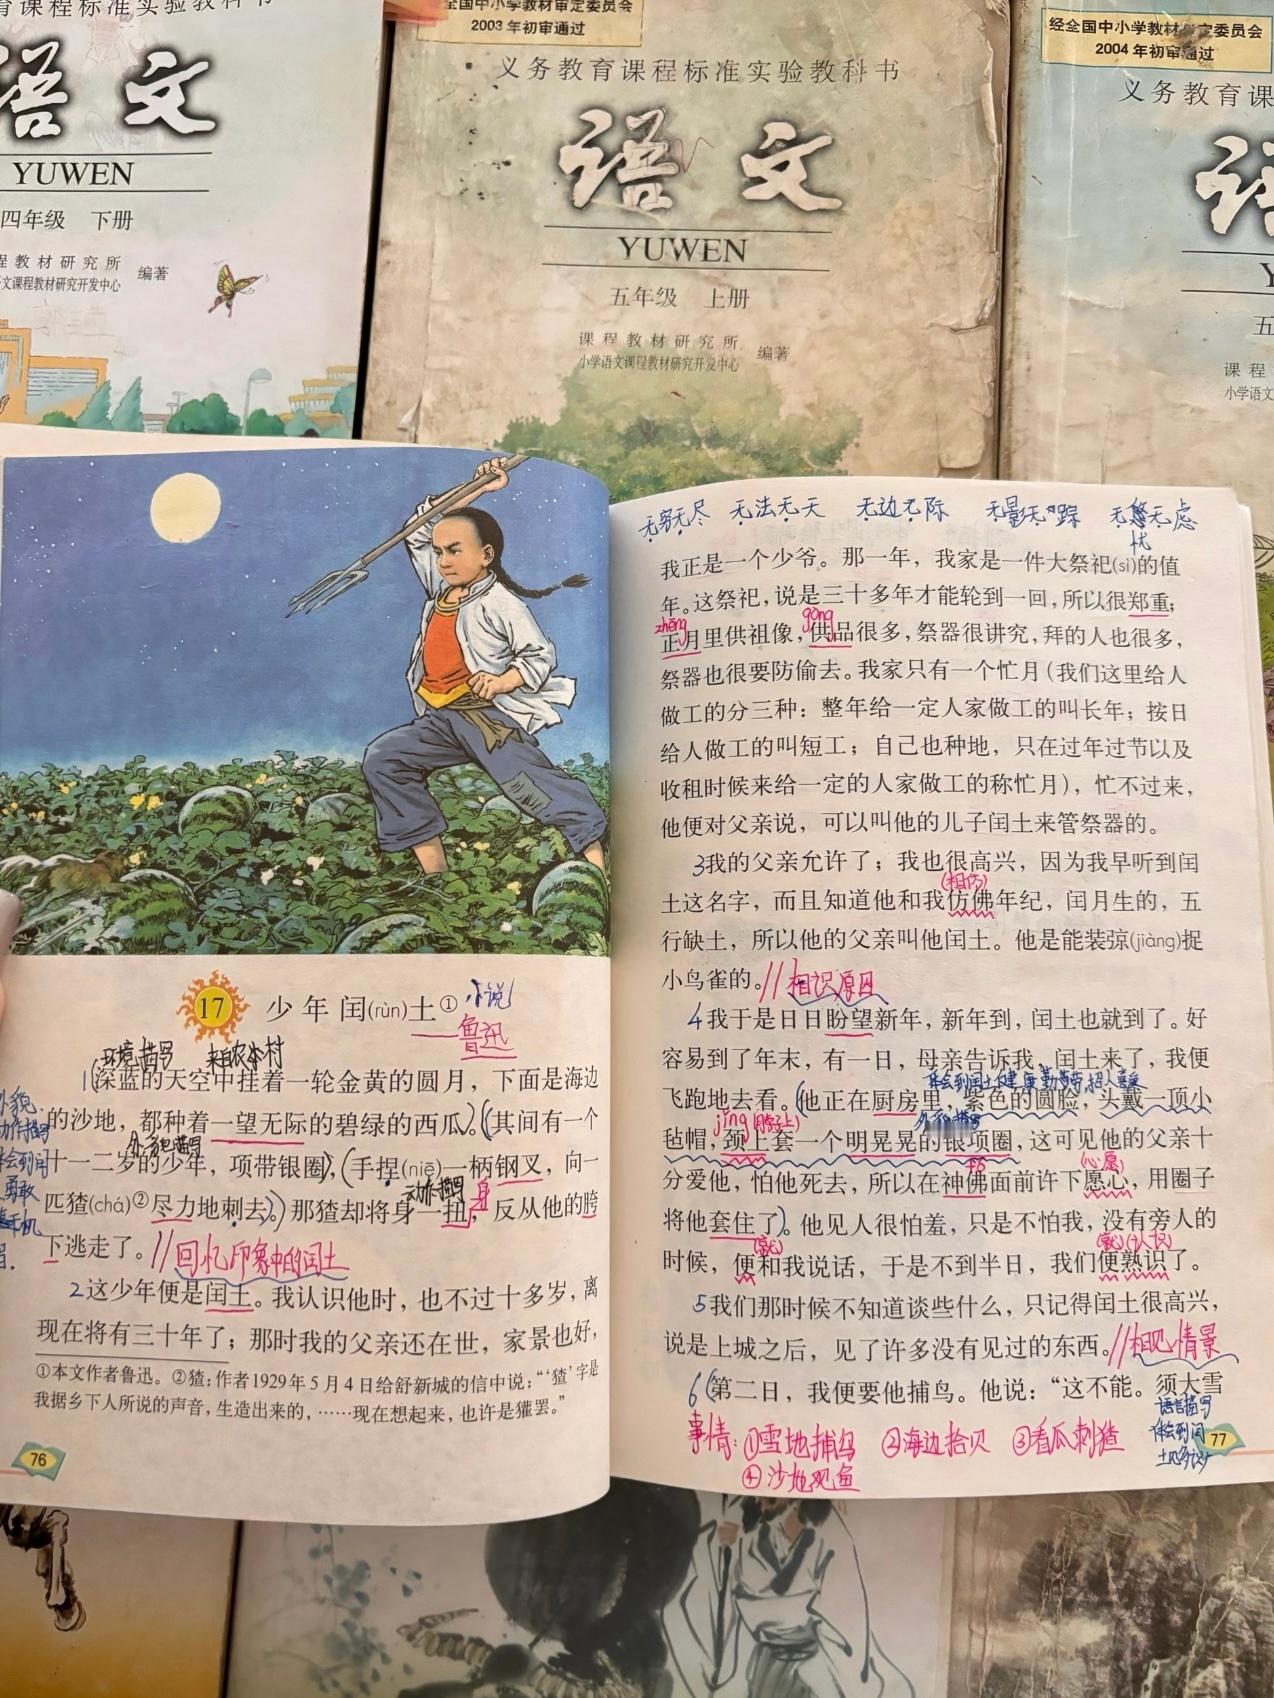 育课程标准实验教科书
语文
YUWEN
四年级 下册
程教材研究所
文课程教材研究开发中心
编著
全国中小学教材审定委员会
2003年初审通过
义务教育课程标准实验教科书
语文
YUWEN
五年级 上册
课程教材研究所
小学语文课程教材研究开发中心
编著
经全国中小学教材审定委员会
2004年初审通过
义务教育课
语
Y
五
课程
小学语文
17 少年闰(rùn)土①
小说
——鲁迅
环境描写 来自农村
1深蓝的天空中挂着一轮金黄的圆月，下面是海边
的沙地，都种着一望无际的碧绿的西瓜。(其间有一个
外貌描写
十一二岁的少年，项带银圈，(手捏(niē)一柄钢叉，向一
动作描写
匹猹(chá)②尽力地刺去。)那猹却将身一扭，反从他的胯
身
下逃走了。//回忆印象中的闰土
2这少年便是闰土。我认识他时，也不过十多岁，离
现在将有三十年了；那时我的父亲还在世，家景也好，
①本文作者鲁迅。②猹：作者1929年5月4日给舒新城的信中说：“‘猹’字是
我据乡下人所说的声音，生造出来的，……现在想起来，也许是獾罢。”
76
外貌
动作描写
体会到闰
勇敢
机
无穷无尽 无法无天 无边无际 无影无踪 无悠无虑
忧
我正是一个少爷。那一年，我家是一件大祭祀(sì)的值
年。这祭祀，说是三十多年才能轮到一回，所以很郑重；
zhēng gòng
正月里供祖像，供品很多，祭器很讲究，拜的人也很多，
祭器也很要防偷去。我家只有一个忙月（我们这里给人
做工的分三种：整年给一定人家做工的叫长年；按日
给人做工的叫短工；自己也种地，只在过年过节以及
收租时候来给一定的人家做工的称忙月），忙不过来，
他便对父亲说，可以叫他的儿子闰土来管祭器的。
3我的父亲允许了；我也很高兴，因为我早听到闰
(相仿)
土这名字，而且知道他和我仿佛年纪，闰月生的，五
行缺土，所以他的父亲叫他闰土。他是能装弶(jiàng)捉
小鸟雀的。//相识原因
4我于是日日盼望新年，新年到，闰土也就到了。好
容易到了年末，有一日，母亲告诉我，闰土来了，我便
体会到闰土健康、勤劳、招人喜爱
飞跑地去看。(他正在厨房里，紫色的圆脸，头戴一顶小
jǐng(脖子上) 外貌描写
毡帽，颈上套一个明晃晃的银项圈，这可见他的父亲十
(心愿)
分爱他，怕他死去，所以在神佛面前许下愿心，用圈子
将他套住了)。他见人很怕羞，只是不怕我，没有旁人的
(就) (就)(认识)
时候，便和我说话，于是不到半日，我们便熟识了。
5我们那时候不知道谈些什么，只记得闰土很高兴，
说是上城之后，见了许多没有见过的东西。//相见情景
6(第二日，我便要他捕鸟。他说：“这不能。须大雪
语言描写
体会到闰
土见多识广
事情：①雪地捕鸟 ②海边拾贝 ③看瓜刺猹
④沙地观鱼
77